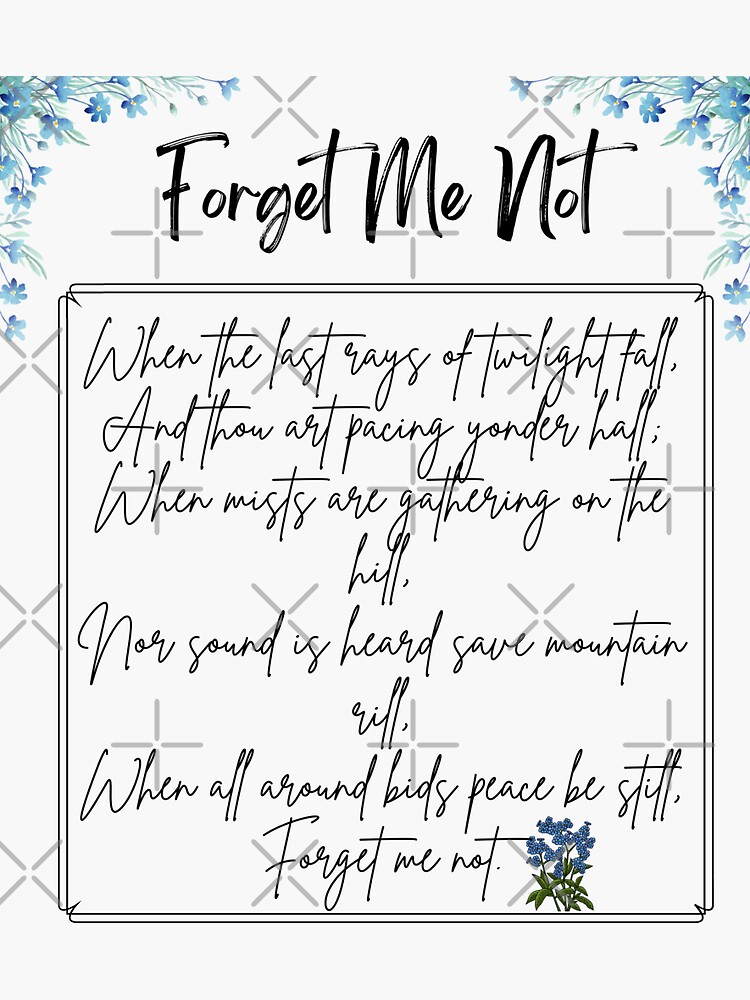 Forget Me Not
When the last rays of twilight fall,
And thou art pacing yonder hall;
When mists are gathering on the
hill,
Nor sound is heard save mountain
rill,
When all around bids peace be still,
Forget me not.